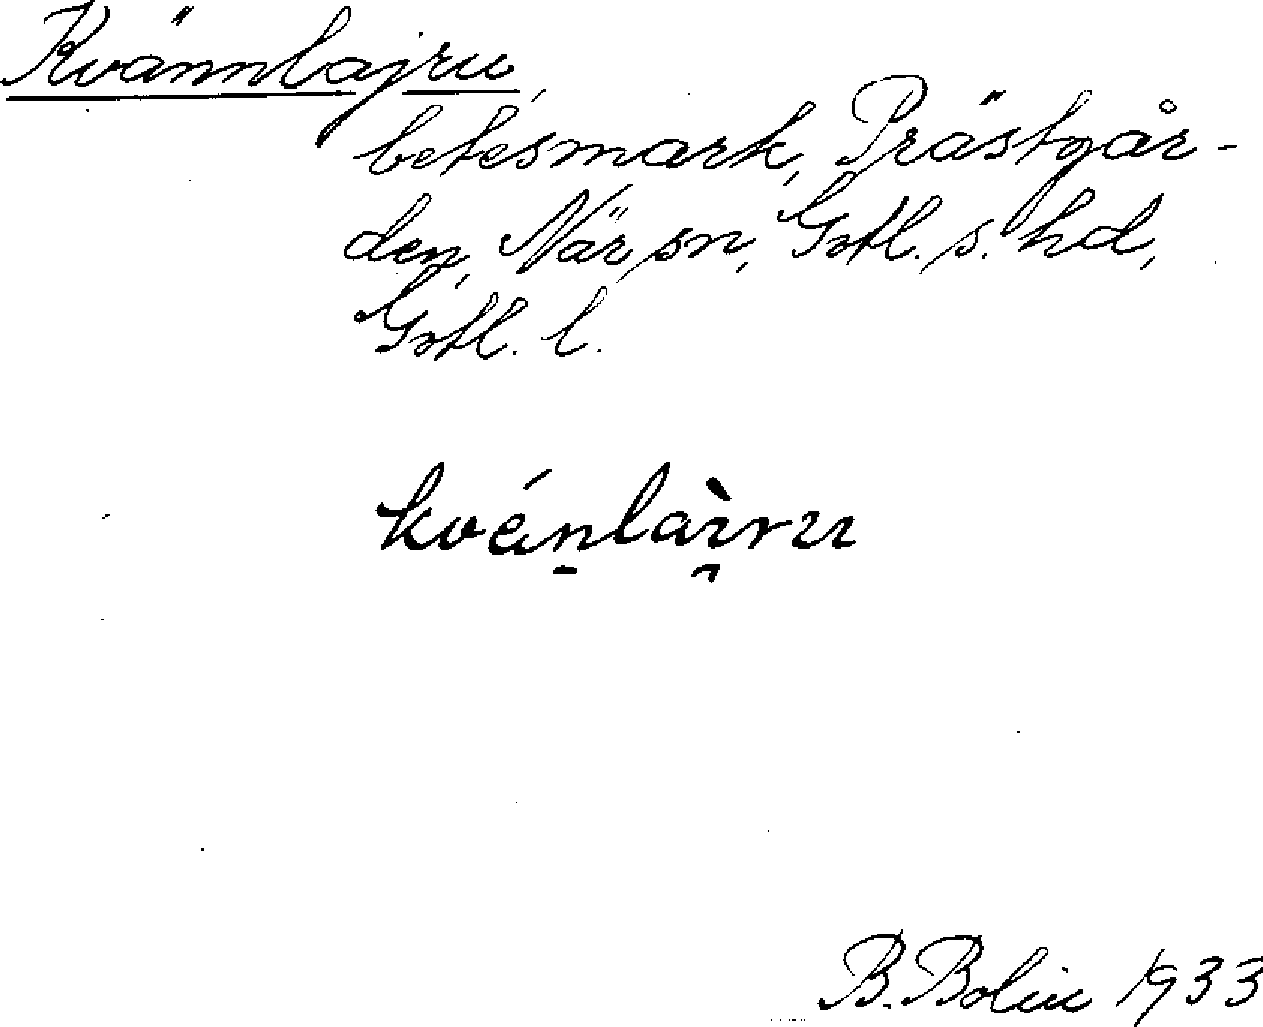 Kvännlajru,
betesmark, Prästgår-
den, När sn, Gotl. s. hd,
Gotl. l.
kvä́n̠lài̯ru
B. Bolin 1933